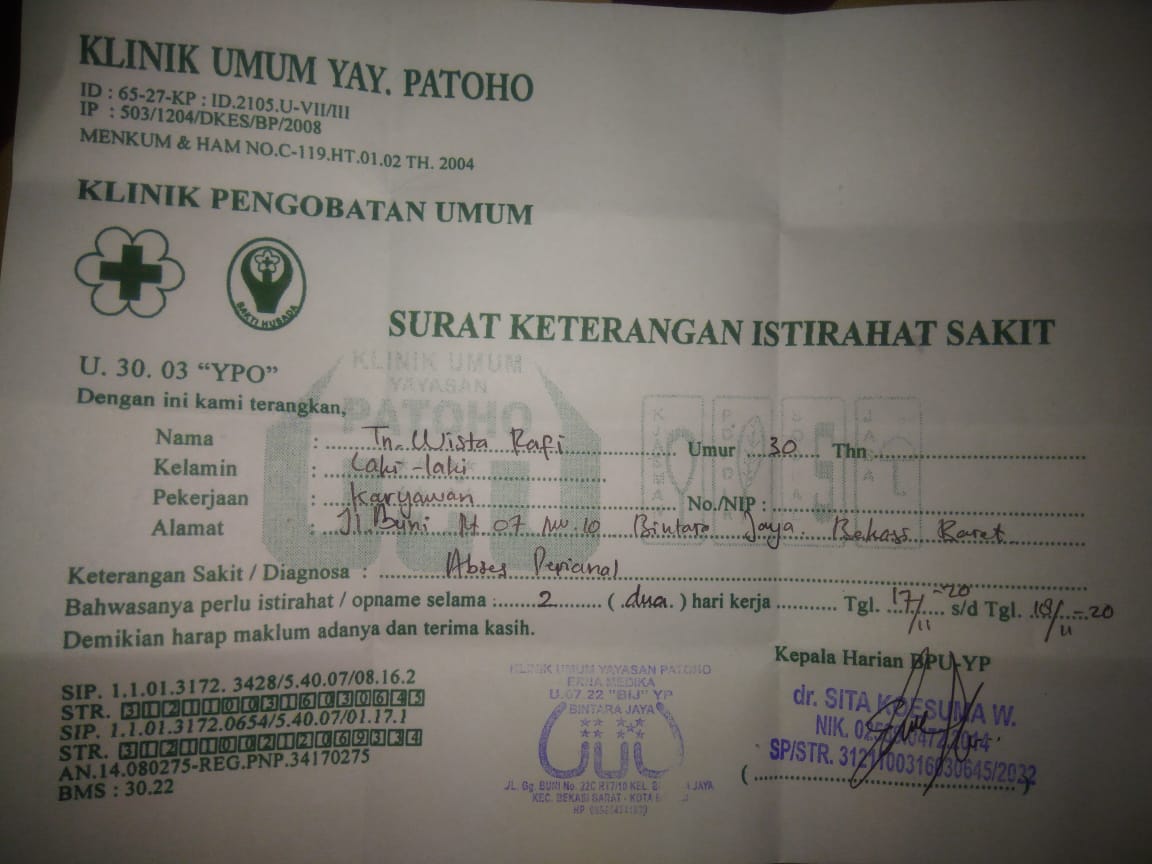 KLINIK UMUM YAY. PATOHO
ID : 65-27-KP : ID.2105.U-VII/III
IP : 503/1204/DKES/BP/2008
MENKUM & HAM NO.C-119.HT.01.02 TH. 2004
KLINIK PENGOBATAN UMUM
BAKTI HUSADA
SURAT KETERANGAN ISTIRAHAT SAKIT
U. 30. 03 “YPO”
KLINIK UMUM
YAYASAN
PATOHO
Dengan ini kami terangkan,
Nama : Tn. Wista Rafi Umur 30 Thn
Kelamin : Laki-laki
Pekerjaan : Karyawan No./NIP :
Alamat : Jl. Buni Rt 07 No 10 Bintara Jaya. Bekasi Barat
Keterangan Sakit / Diagnosa : Abses Perianal
Bahwasanya perlu istirahat / opname selama : 2 ( dua ) hari kerja Tgl. 17/11-20 s/d Tgl. 18/11-20
Demikian harap maklum adanya dan terima kasih.
SIP. 1.1.01.3172. 3428/5.40.07/08.16.2
STR. 3121100316030645
SIP. 1.1.01.3172.0654/5.40.07/01.17.1
STR. 3121100212069334
AN.14.080275-REG.PNP.34170275
BMS : 30.22
KLINIK UMUM YAYASAN PATOHO
ERNA MEDIKA
U.07.22 "BIJ" YP
BINTARA JAYA
JL. Gg. BUNI No. 22C RT7/10 KEL. JAYA
KEC. BEKASI BARAT - KOTA
HP
Kepala Harian BPU-YP
dr. SITA KOESUMA W.
NIK.
SP/STR. 3121100316030645/2022